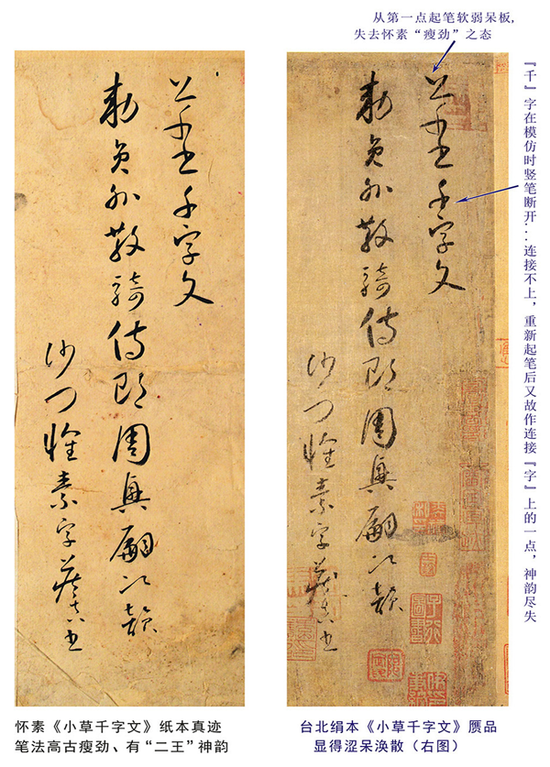 从第一点起笔软弱呆板,
失去怀素“瘦劲”之态
『千』字在模仿时竖笔断开：连接不上，重新起笔后又故作连接『字』上的一点，神韵尽失
千字文
勅員外散騎侍郎周興嗣次韻
沙門懷素字藏真書
千字文
勅員外散騎侍郎周興嗣次韻
沙門懷素字藏真書
怀素《小草千字文》纸本真迹
笔法高古瘦劲、有“二王”神韵
台北绢本《小草千字文》赝品
显得涩呆涣散（右图）